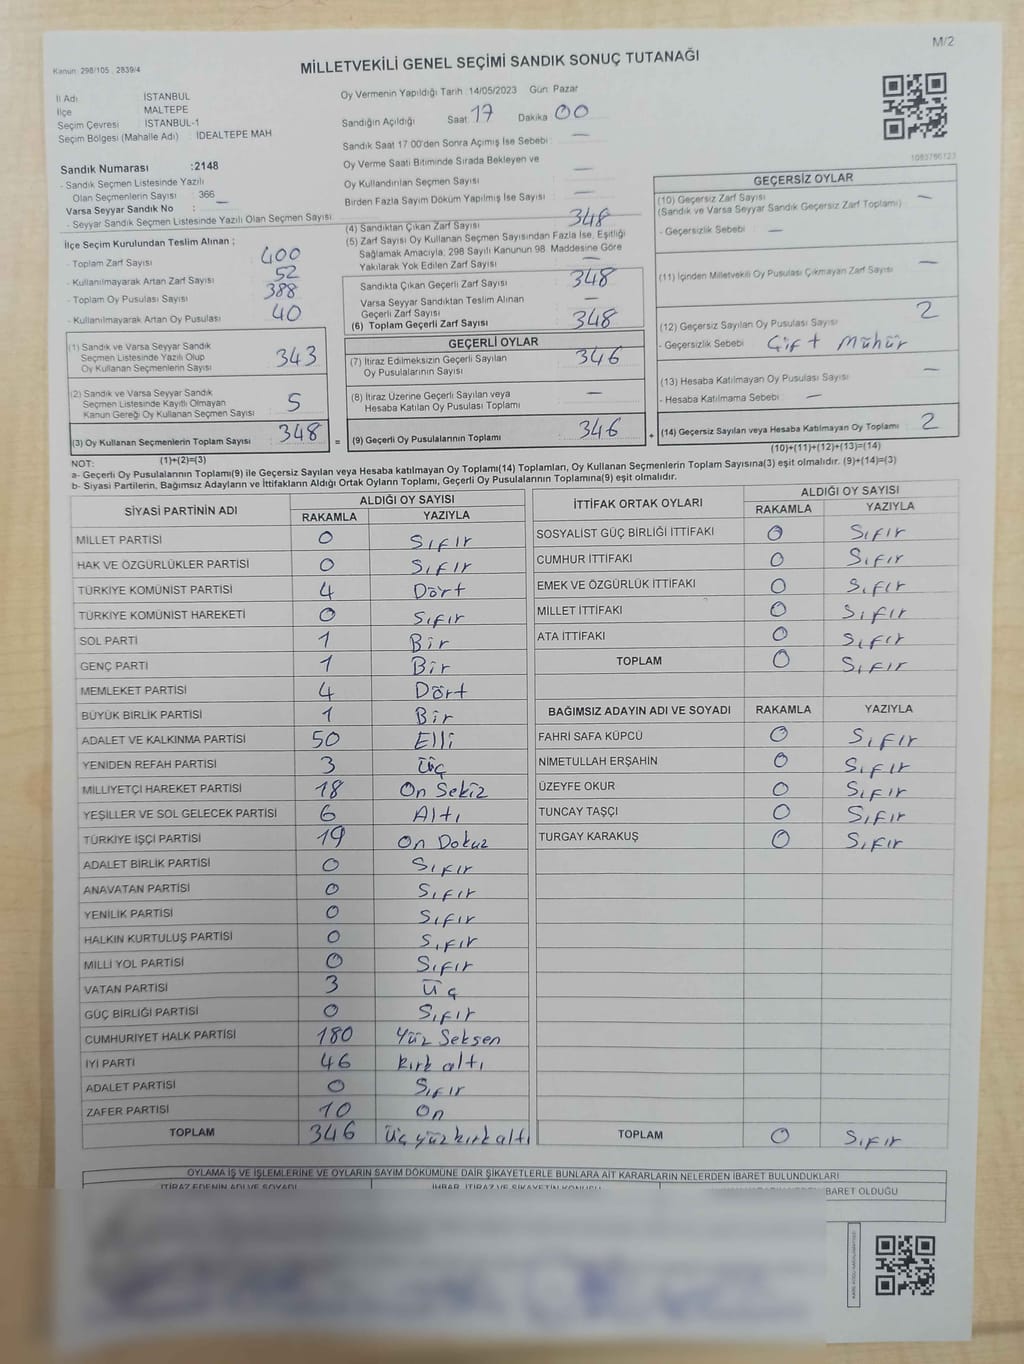 M/2
Kanun: 298/105 2839/4
MİLLETVEKİLİ GENEL SEÇİMİ SANDIK SONUÇ TUTANAĞI
İl Adı : İSTANBUL
İlçe : MALTEPE
Seçim Çevresi : İSTANBUL-1
Seçim Bölgesi (Mahalle Adı) : İDEALTEPE MAH
Sandık Numarası :2148
- Sandık Seçmen Listesinde Yazılı
Olan Seçmenlerin Sayısı : 366
Varsa Seyyar Sandık No : —
- Seyyar Sandık Seçmen Listesinde Yazılı Olan Seçmen Sayısı
İlçe Seçim Kurulundan Teslim Alınan ;
- Toplam Zarf Sayısı 400
- Kullanılmayarak Artan Zarf Sayısı 52
- Toplam Oy Pusulası Sayısı 388
- Kullanılmayarak Artan Oy Pusulası 40
(1) Sandık ve Varsa Seyyar Sandık
Seçmen Listesinde Yazılı Olup
Oy Kullanan Seçmenlerin Sayısı 343
(2) Sandık ve Varsa Seyyar Sandık
Seçmen Listesinde Kayıtlı Olmayan
Kanun Gereği Oy Kullanan Seçmen Sayısı 5
(3) Oy Kullanan Seçmenlerin Toplam Sayısı 348 =
(1)+(2)=(3)
Oy Vermenin Yapıldığı Tarih :14/05/2023 Gün: Pazar
Sandığın Açıldığı Saat 17 Dakika 00
Sandık Saat 17:00'den Sonra Açımış İse Sebebi : —
Oy Verme Saati Bitiminde Sırada Bekleyen ve
Oy Kullandırılan Seçmen Sayısı —
Birden Fazla Sayım Döküm Yapılmış İse Sayısı —
(4) Sandıktan Çıkan Zarf Sayısı 348
(5) Zarf Sayısı Oy Kullanan Seçmen Sayısından Fazla İse, Eşitliği
Sağlamak Amacıyla; 298 Sayılı Kanunun 98. Maddesine Göre
Yakılarak Yok Edilen Zarf Sayısı —
Sandıkta Çıkan Geçerli Zarf Sayısı 348
Varsa Seyyar Sandıktan Teslim Alınan
Geçerli Zarf Sayısı —
(6) Toplam Geçerli Zarf Sayısı 348
GEÇERLİ OYLAR
(7) İtiraz Edilmeksizin Geçerli Sayılan
Oy Pusulalarının Sayısı 346
(8) İtiraz Üzerine Geçerli Sayılan veya
Hesaba Katılan Oy Pusulası Toplamı —
(9) Geçerli Oy Pusulalarının Toplamı 346 +
1083766123
GEÇERSİZ OYLAR
(10) Geçersiz Zarf Sayısı —
(Sandık ve Varsa Seyyar Sandık Geçersiz Zarf Toplamı)
- Geçersizlik Sebebi : —
(11) İçinden Milletvekili Oy Pusulası Çıkmayan Zarf Sayısı —
(12) Geçersiz Sayılan Oy Pusulası Sayısı 2
- Geçersizlik Sebebi : Çift Mühür
(13) Hesaba Katılmayan Oy Pusulası Sayısı —
- Hesaba Katılmama Sebebi : —
(14) Geçersiz Sayılan veya Hesaba Katılmayan Oy Toplamı 2
(10)+(11)+(12)+(13)=(14)
NOT:
a- Geçerli Oy Pusulalarının Toplamı(9) ile Geçersiz Sayılan veya Hesaba katılmayan Oy Toplamı(14) Toplamları, Oy Kullanan Seçmenlerin Toplam Sayısına(3) eşit olmalıdır. (9)+(14)=(3)
b- Siyasi Partilerin, Bağımsız Adayların ve İttifakların Aldığı Ortak Oyların Toplamı, Geçerli Oy Pusulalarının Toplamına(9) eşit olmalıdır.
SİYASİ PARTİNİN ADI ALDIĞI OY SAYISI
RAKAMLA YAZIYLA
MİLLET PARTİSİ 0 Sıfır
HAK VE ÖZGÜRLÜKLER PARTİSİ 0 Sıfır
TÜRKİYE KOMÜNİST PARTİSİ 4 Dört
TÜRKİYE KOMÜNİST HAREKETİ 0 Sıfır
SOL PARTİ 1 Bir
GENÇ PARTİ 1 Bir
MEMLEKET PARTİSİ 4 Dört
BÜYÜK BİRLİK PARTİSİ 1 Bir
ADALET VE KALKINMA PARTİSİ 50 Elli
YENİDEN REFAH PARTİSİ 3 Üç
MİLLİYETÇİ HAREKET PARTİSİ 18 On Sekiz
YEŞİLLER VE SOL GELECEK PARTİSİ 6 Altı
TÜRKİYE İŞÇİ PARTİSİ 19 On Dokuz
ADALET BİRLİK PARTİSİ 0 Sıfır
ANAVATAN PARTİSİ 0 Sıfır
YENİLİK PARTİSİ 0 Sıfır
HALKIN KURTULUŞ PARTİSİ 0 Sıfır
MİLLİ YOL PARTİSİ 0 Sıfır
VATAN PARTİSİ 3 Üç
GÜÇ BİRLİĞİ PARTİSİ 0 Sıfır
CUMHURİYET HALK PARTİSİ 180 Yüz Seksen
İYİ PARTİ 46 kırk altı
ADALET PARTİSİ 0 Sıfır
ZAFER PARTİSİ 10 On
TOPLAM 346 Üç yüz kırk altı
İTTİFAK ORTAK OYLARI ALDIĞI OY SAYISI
RAKAMLA YAZIYLA
SOSYALİST GÜÇ BİRLİĞİ İTTİFAKI 0 Sıfır
CUMHUR İTTİFAKI 0 Sıfır
EMEK VE ÖZGÜRLÜK İTTİFAKI 0 Sıfır
MİLLET İTTİFAKI 0 Sıfır
ATA İTTİFAKI 0 Sıfır
TOPLAM 0 Sıfır
BAĞIMSIZ ADAYIN ADI VE SOYADI RAKAMLA YAZIYLA
FAHRİ SAFA KÜPCÜ 0 Sıfır
NİMETULLAH ERŞAHİN 0 Sıfır
ÜZEYFE OKUR 0 Sıfır
TUNCAY TAŞÇI 0 Sıfır
TURGAY KARAKUŞ 0 Sıfır
TOPLAM 0 Sıfır
OYLAMA İŞ VE İŞLEMLERİNE VE OYLARIN SAYIM DÖKÜMÜNE DAİR ŞİKAYETLERLE BUNLARA AİT KARARLARIN NELERDEN İBARET BULUNDUKLARI
İTİRAZ EDENİN ADI VE SOYADI İHBAR, İTİRAZ VE ŞİKAYETİN KONUSU BARET OLDUĞU